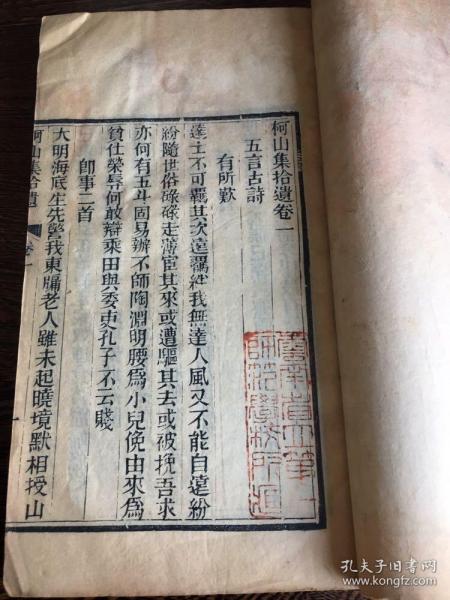 柯山集拾遺卷一
五言古詩
有所歎
達士不可羈其次遠羈紲我無達人風又不能自遠紛
紛隨世俗碌碌走薄宦其來或遭驅其去或被挽吾求
亦何有五斗固易辦不師陶淵明腰爲小兒俛由來爲
貧仕榮辱何敢辯乘田與委吏孔子不云賤
卽事二首
大明海底生先瑩我東牖老人雖未起曉境默相授山
柯山集拾遺
卷一
一
孔夫子旧书网
www.kongfz.com